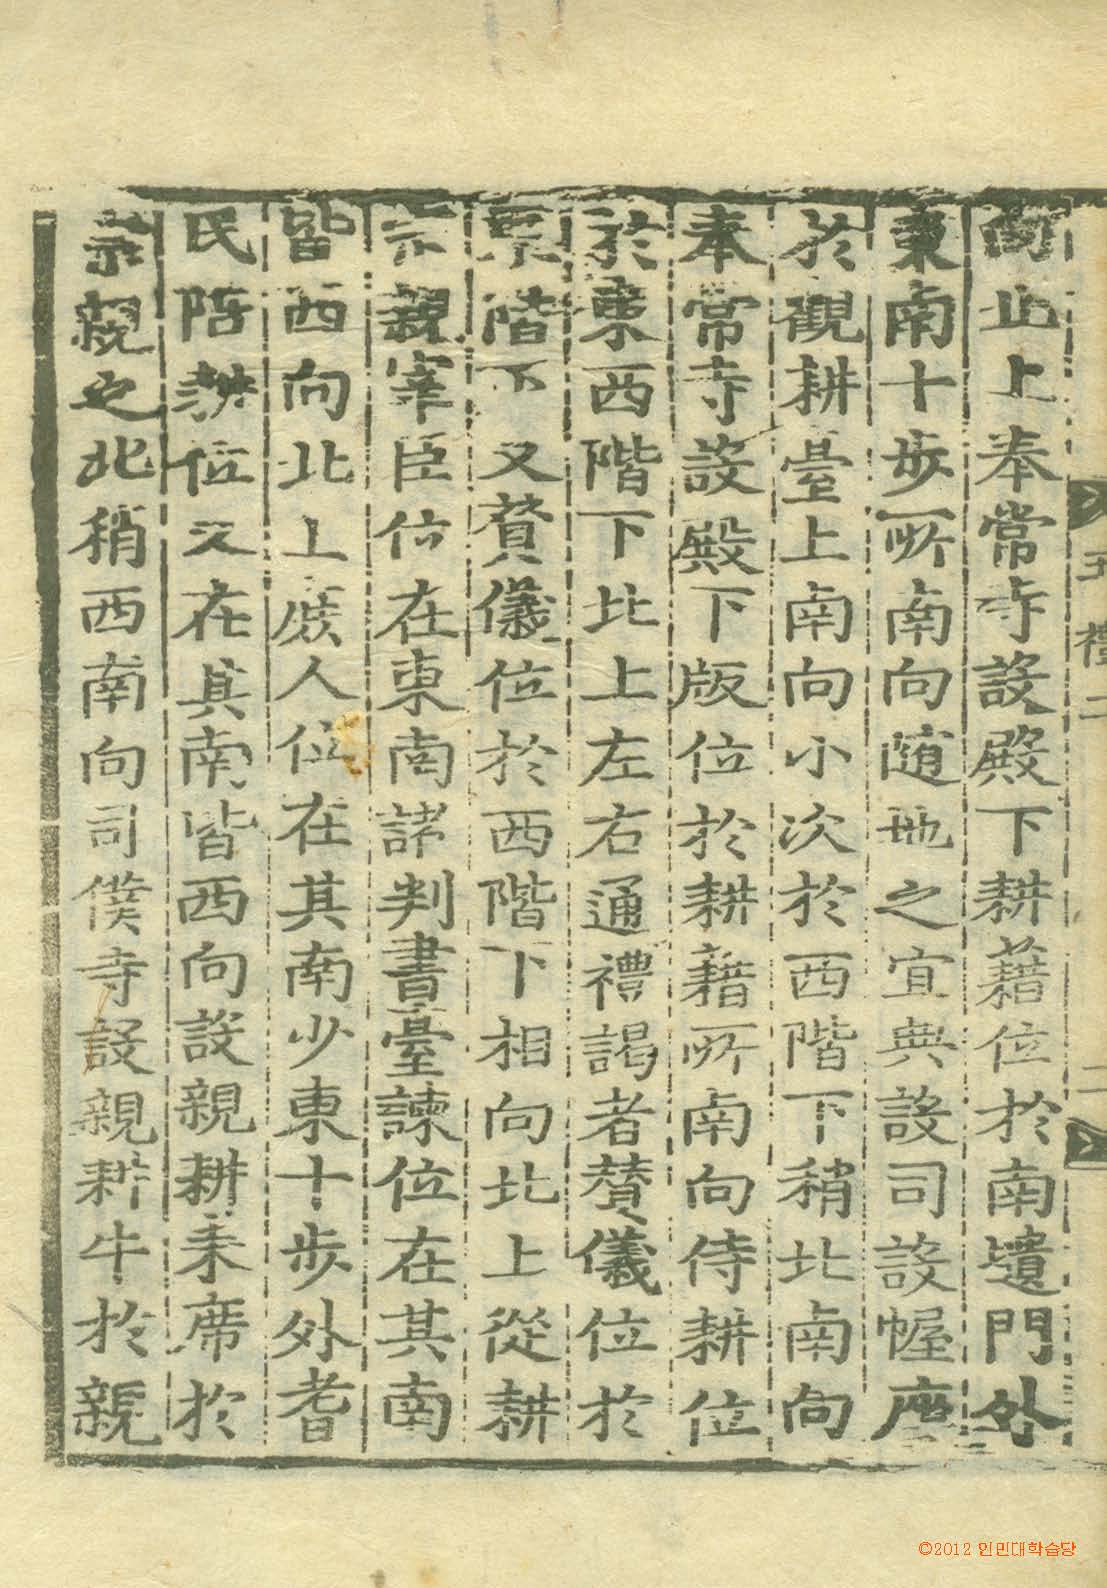 五禮二 二
向北上奉常寺設殿下耕藉位於南壝門外
東南十步所南向随地之宜典設司設幄座
於觀耕臺上南向小次於西階下稍北南向
奉常寺設殿下版位於耕藉所南向侍耕位
於東西階下北上左右通禮謁者賛儀位於
東階下又賛儀位於西階下相向北上從耕
宗親宰臣位在東南諸判書臺諫位在其南
皆西向北上庶人位在其南少東十步外耆
民陪耕位又在其南皆西向設親耕耒席於
宗親之北稍西南向司僕寺設親耕牛於親
©2012 인민대학습당